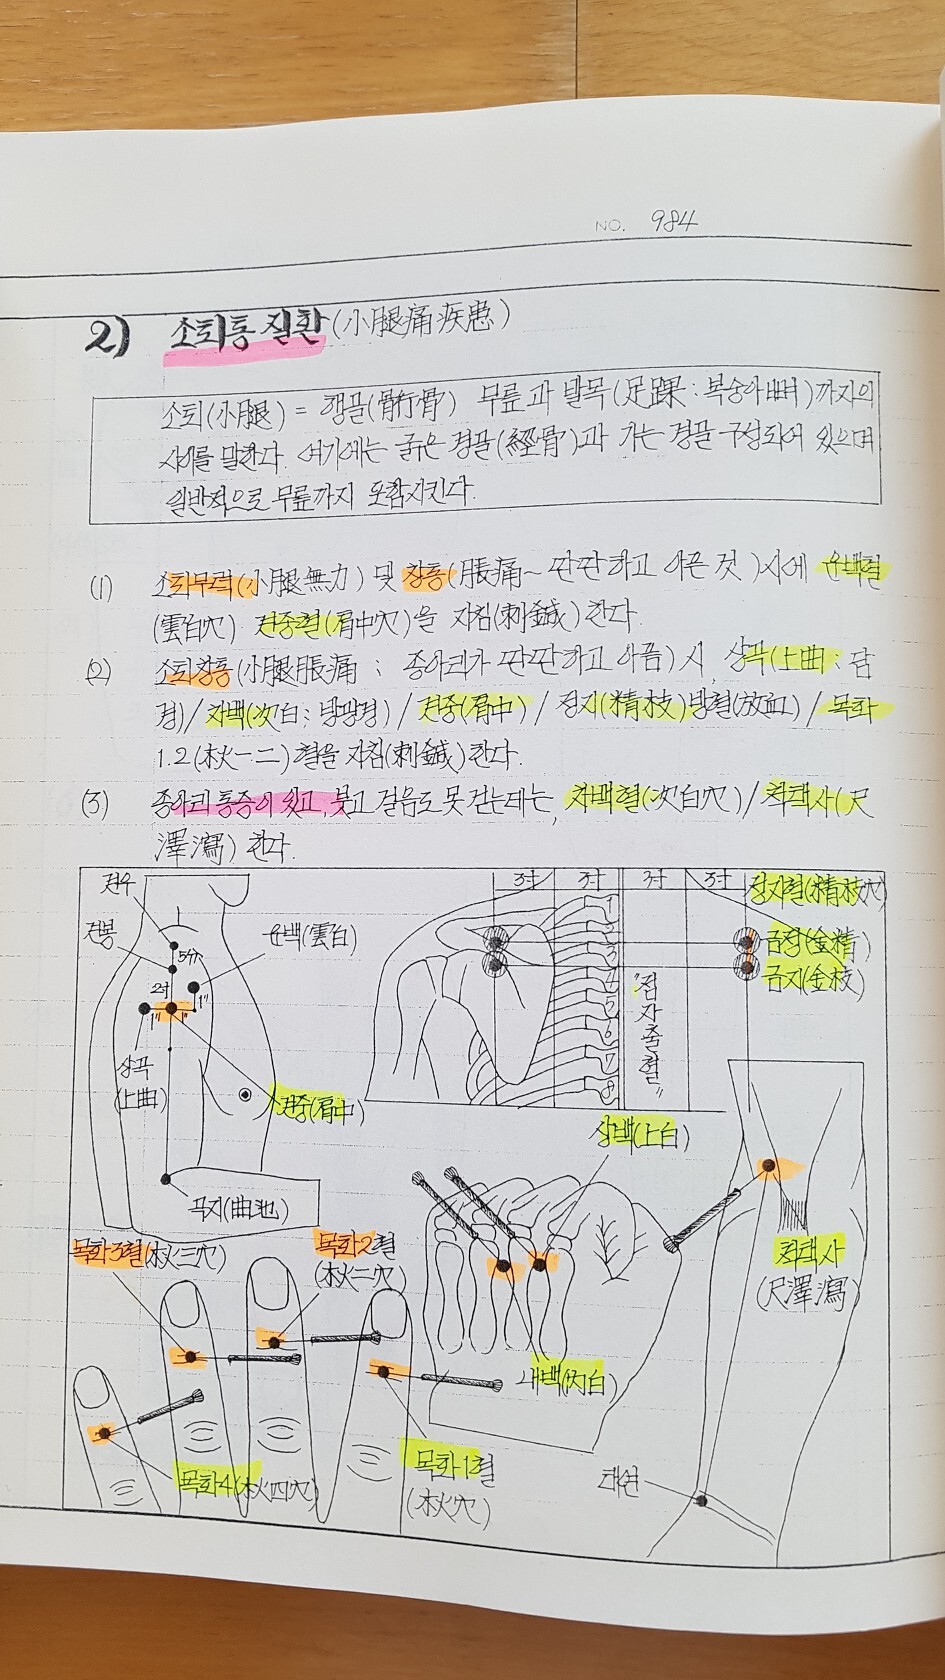 NO. 984
2) 소퇴통 질환(小腿痛疾患)
소퇴(小腿) = 행골(骨行骨) 무릎과 발목(足踝:복숭아뼈)까지의
사이를 말한다. 여기에는 굵은 경골(經骨)과 가는 경골 구성되어 있으며
일반적으로 무릎까지 포함시킨다.
(1) 소퇴무력(小腿無力) 및 창통(脹痛~ 딴딴하고 아픈 것)시에 운백혈
(雲白穴) 견중혈(肩中穴)을 자침(刺鍼)한다.
(2) 소퇴창통(小腿脹痛 : 종아리가 딴딴하고 아픔)시, 상곡(上曲 : 담
경)/ 차백(次白 : 방광경) / 견중(肩中) / 정지(精枝)방혈(放血) / 목화
1.2(木火一二)혈을 자침(刺鍼)한다.
(3) 종아리 통증이 있고, 붓고 걸음도 못 걷는데는, 차백혈(次白穴)/척택사(尺
澤瀉) 한다.
견우
견봉
운백(雲白)
5分
2寸
1"
1"
1"
상곡
(上曲)
견중(肩中)
곡지(曲池)
3寸 3寸 3寸 3寸
정지혈(精枝穴)
금정(金精)
금지(金枝)
1
2
3
4
5
6
7
8
"점자출혈"
상백(上白)
내백(內白)
척택사
(尺澤瀉)
태연
목화3혈(木火三穴)
목화2혈
(木火二穴)
목화4(木火四穴)
목화1혈
(木火穴)